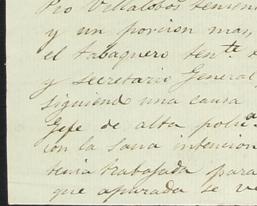 Pio Villalobos teniendo
y un porcion mas,
el tabaquero ten.te
y secretario General
siguiendo una causa
Gefe de alta polic.a
con la sana intencion
tenia trabajada para
que apurada se ve